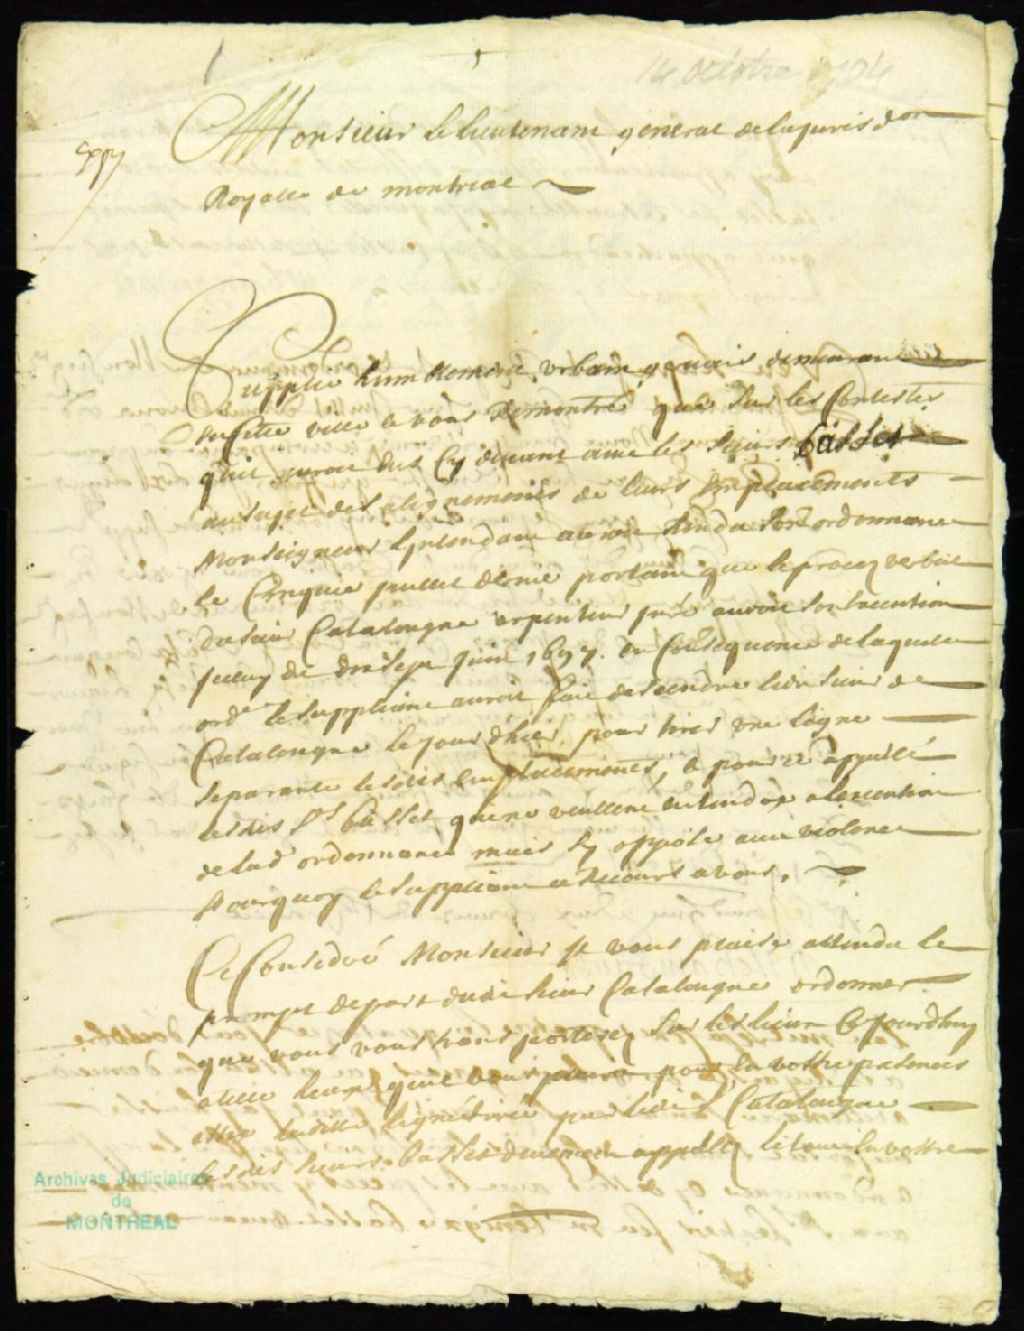 14 octobre 1704
Monsieur le lieutenant general de la jurisd.on
Royalle de montreal
Supplie humblement urbain gervais demeurant
en cette ville et vous Remontre que sur les Contestes
qu'il auroit Eus Cy devant avec les sieurs Basset
au sujet des alignements de leurs Emplacements
Monseigneur L'Intendant auroit Rendu son ordonnance
le Cinquie juillet dernie portant que le procez verbal
du sieur Catalougne arpenteur juré auroit son Execution
juin 1697. En Consequence de laquelle
ord.e le suppliant auroit fait descendre ledit sieur de
Catalougne le jour d'hier, pour tirer une ligne
separante lesdits Emplacements, et pour ce appellé
lesdits Srs Basset qui ne veullent entendre a l'execution
de lad. ordonnance mais sy oppose avec violence
Pourquoy le suppliant a Recours a vous.
Ce Consideré Monsieur Il vous plaise attendu le
prompt depart dudit sieur Catalougne ordonner
que vous vous transporterez sur les lieux Cejourdhuy
a telle heure qu'il vous plaira pour en vostre presence
estre laditte ligne tirée par ledit Sr Catalougne
lesdits sieurs Basset deuement appellez le tout en vostre
Archives Judiciaires
de
MONTREAL